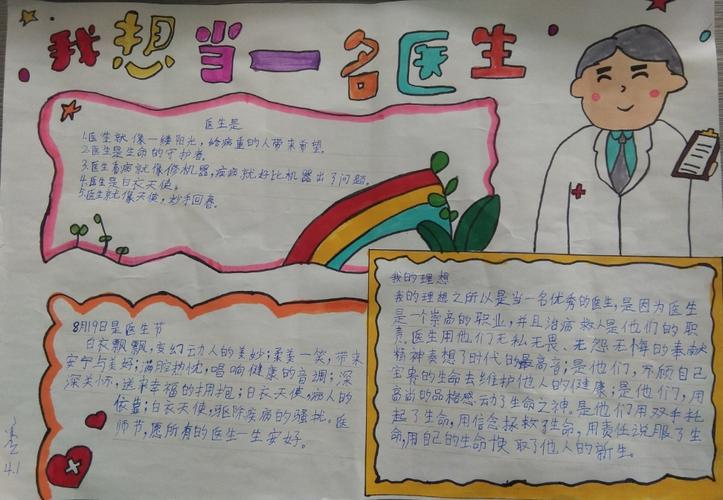 我想当一名医生
医生是
1.医生就像一缕阳光，给病重的人带来希望。
2.医生是生命的守护者。
3.医生看病就像修机器，疾病就好比机器出了问题。
4.医生是白衣天使。
5.医生就像天使，妙手回春。
我的理想
我的理想之所以是当一名优秀的医生，是因为医生
是一个崇高的职业，并且治病救人是他们的职
责。医生用他们无私无畏、无怨无悔的奉献
精神奏想了时代的最高音；是他们，不顾自己
宝贵的生命去维护他人的健康；是他们，用
高尚的品格感动了生命之神。是他们用双手托
起了生命，用信念拯救了生命，用责任说服了生
命，用自己的生命换取了他人的新生。
8月19日是医生节
白衣飘飘，变幻动人的美妙；柔美一笑，带来
安宁与美好；满腔热忱，唱响健康的音调；深
深关怀，送来幸福的拥抱；白衣天使，病人的
依靠；白衣天使，驱除疾病的骚扰。医
师节，愿所有的医生一生安好。
4.1